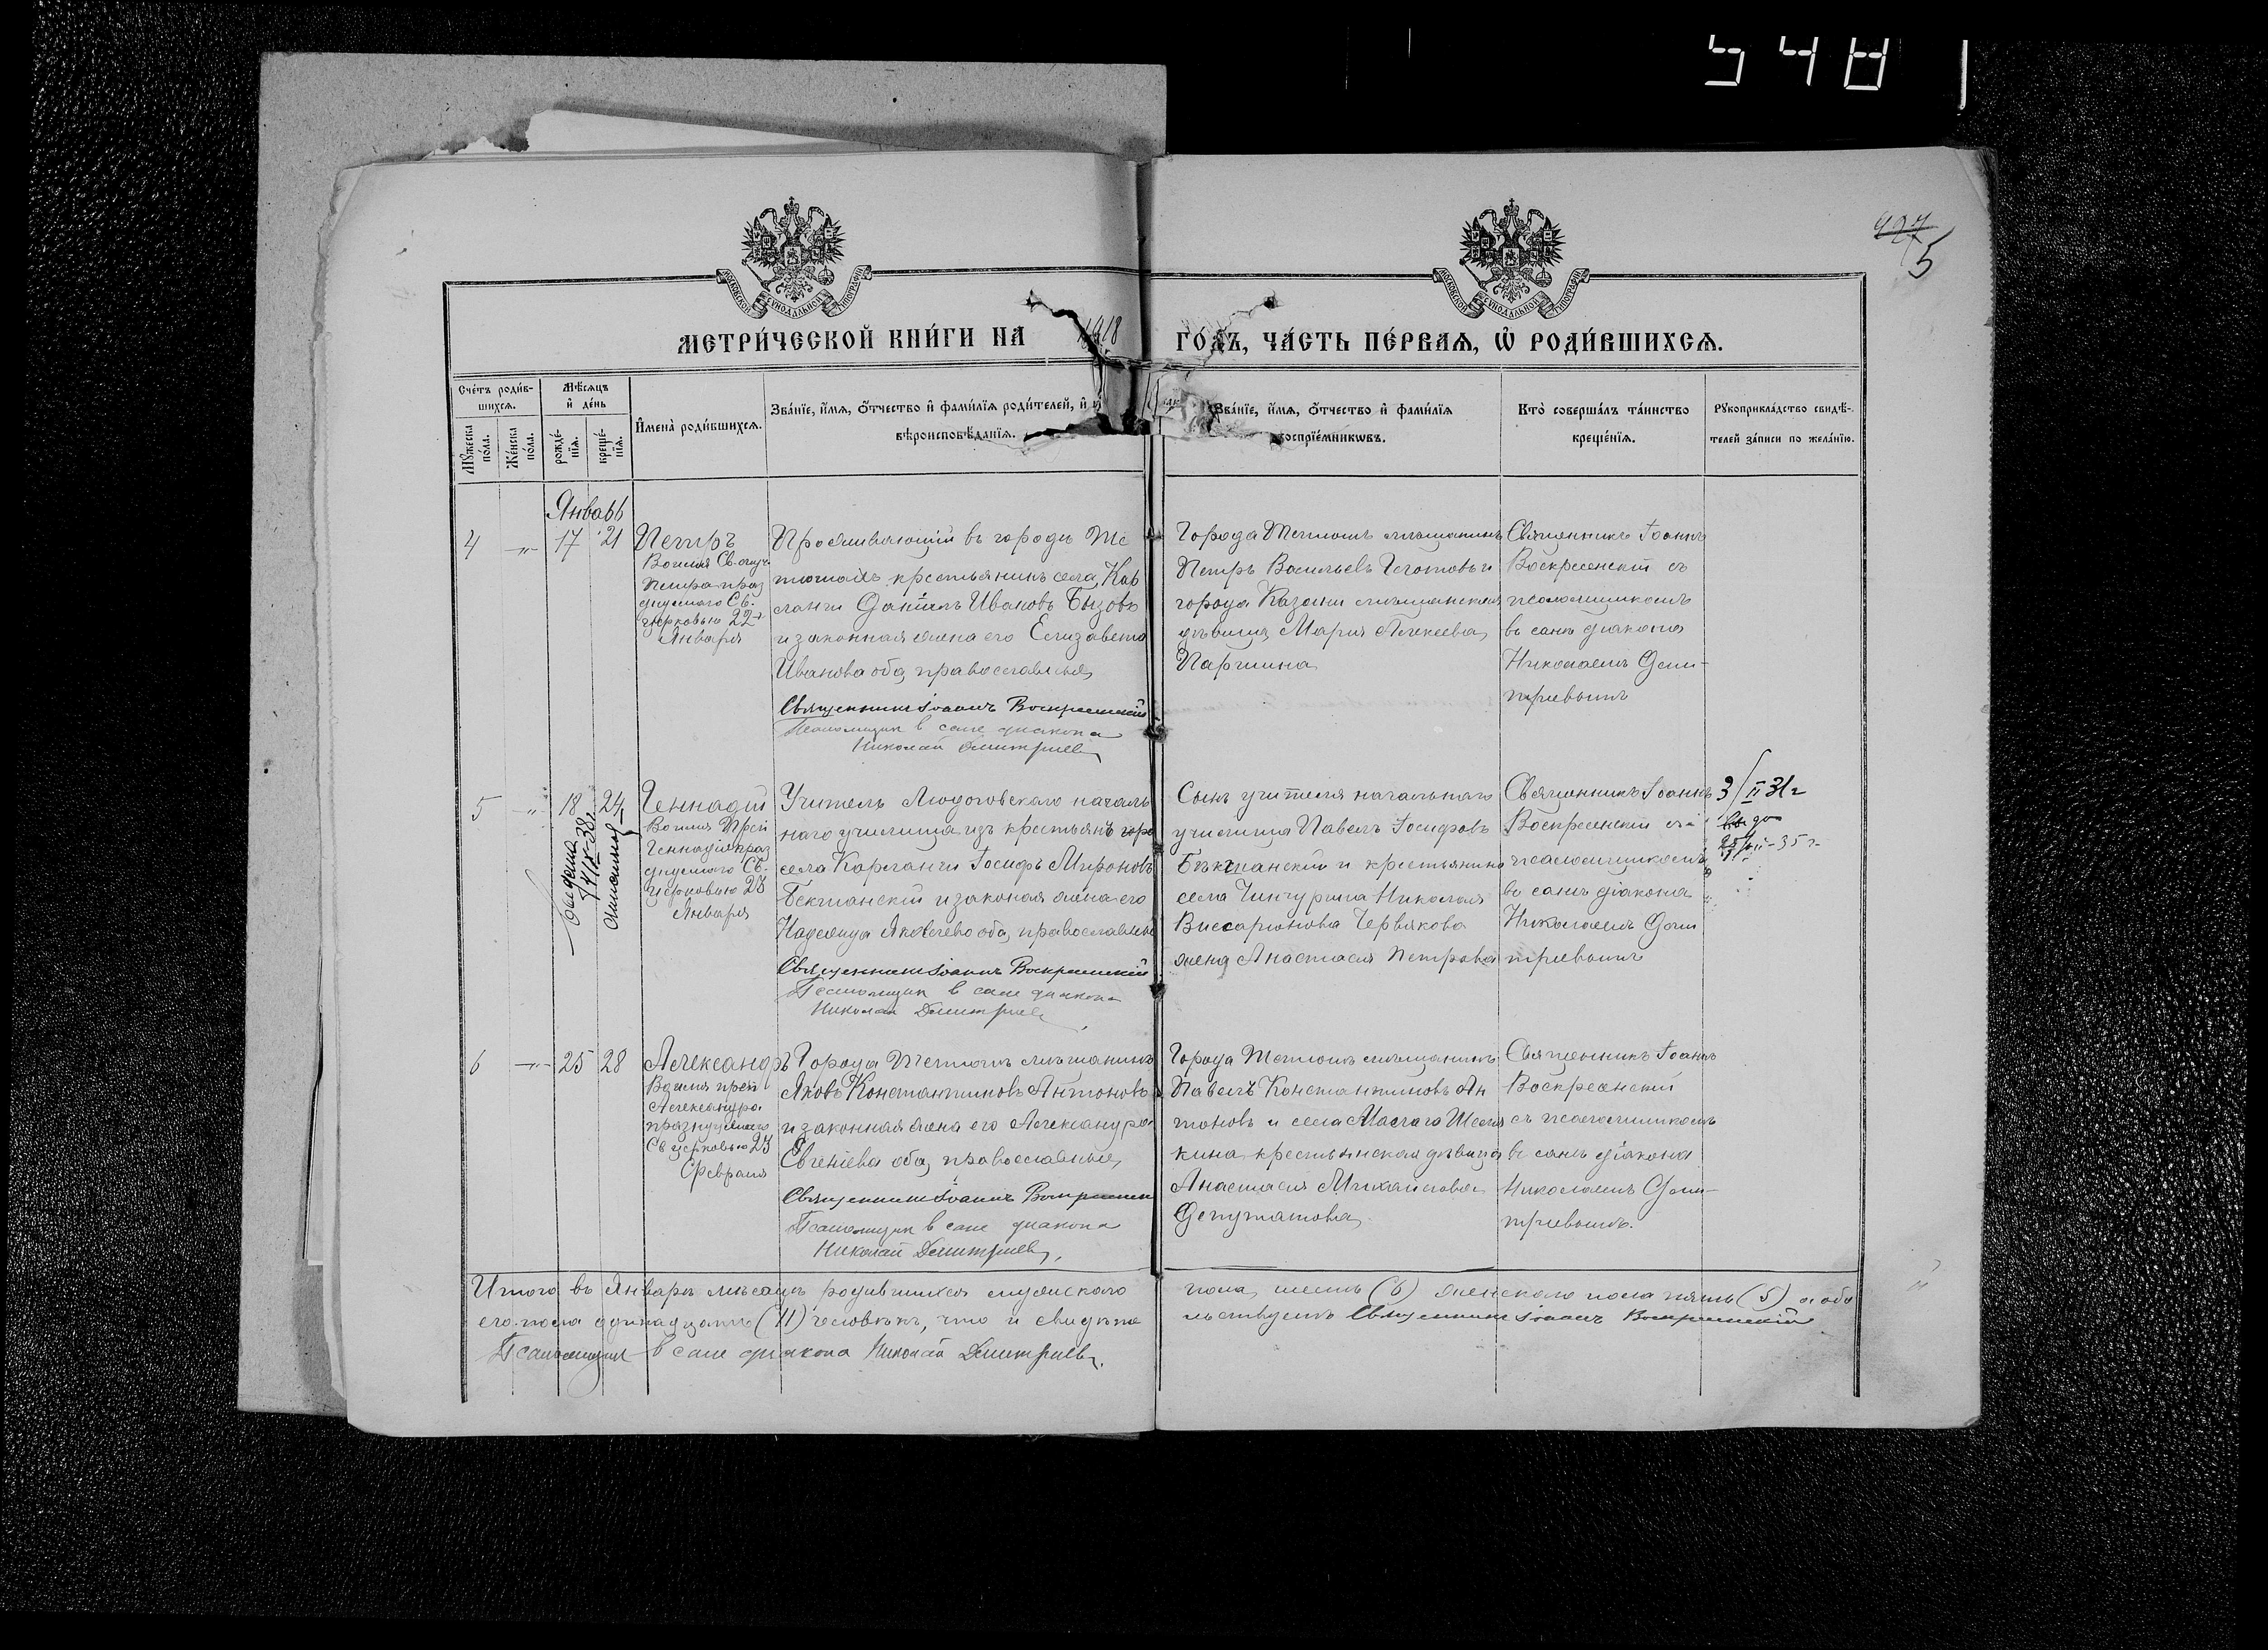 5481
927
5
МОСКОВСКОЙ СѴНОДАЛЬНОЙ ТИПОГРАФІИ
МОСКОВСКОЙ СѴНОДАЛЬНОЙ ТИПОГРАФІИ
МЕТРИ́ЧЕСКОЙ КНИ́ГИ НА 1918 ГО́ДЪ, ЧА́СТЬ ПЕ́РВАЯ, Ѡ РОДИ́ВШИХСЯ.
Сче́тъ роди́в-
шихся.
Мꙋ́жеска
по́ла.
Же́нска
по́ла.
Мѣ́сяцъ
и҆ де́нь
рожде́-
нїя.
креще́-
нїя.
И҆мена̀ роди́вшихся.
Зва́нїе, и҆́мя, ѻ҆́тчество и҆ фами́лїя роди́телей, и҆
вѣроисповѣ́данїя.
Зва́нїе, и҆́мя, ѻ҆́тчество и҆ фами́лїя
воспрїе́мникѡвъ.
Кто̀ соверша́лъ та́инство
креще́нїя.
Рꙋкоприкла́дство свидѣ́-
телей за́писи по жела́нїю.
Январь
4 -"- 17 21
Петръ
Во имя Св.
Петра праз
днуемаго Св.
церковью 22
Января
Проживающій въ городѣ Те
тюшахъ крестьянинъ села Кар
ланги Даніилъ Ивановъ Бызовъ
и законная жена его Елизавета
Иванова оба православные
Священникъ Іоаннъ Воскресенскій
Псаломщик в сане диакона
Николай Дмитриев
Города Тетюшъ мѣщанинъ
Петръ Васильевъ и
города Казани мѣщанская
дѣвица Марія Алексеева
Паршина
Священникъ Іоаннъ
Воскресенскій съ
псаломщикомъ
въ санѣ діакона
Николаемъ Дми-
тріевымъ
5 -"- 18 24
Геннадій
Во имя Преп
Геннадія праз
днуемаго Св.
церковью 23
Января
Учитель Людоговскаго началь
наго училища изъ крестьянъ
села Карланги Іосифъ Мироновъ
Бекшанскій и законая жена его
Надежда Яковлева оба православные
Священникъ Іоаннъ Воскресенскій
Псаломщик в сане диакона
Николай Дмитриев
Сынъ учителя начальнаго
училища Павелъ Іосифовъ
Бекшанскій и крестьянина
села Чинчурина Николая
Виссарионова Червякова
жена Анастасія Петрова
Священникъ Іоаннъ
Воскресенскій съ
псаломщикомъ
въ санѣ діакона
Николаемъ Дми
тріевымъ
3/II 31 г
6 -"- 25 28
Александръ
Во имя преп
Александра
празднуемаго
Св церковью 23
Февраля
Города Тетюшъ мѣщанинъ
Яковъ Константиновъ Антоновъ
и законная жена его Александра
Евгеніева оба православные
Священникъ Іоаннъ Воскресенск
Псаломщик в сане диакона
Николай Дмитриев.
Города Тетюшъ мѣщанинъ
Павелъ Константиновъ Ан
тоновъ и села Малаго Шемя
кина крестьянская дѣвица
Анастасія Михайловна
Депутатова
Священникъ Іоаннъ
Воскресенскій
съ псаломщикомъ
въ санѣ діакона
Николаемъ Дми-
тріевымъ.
Итого въ Январѣ мѣсяцѣ родившихся мужского пола шесть (6) женскаго пола пять (5) а обо
его пола одинадцать (11) человѣкъ, что и свидѣте льствуетъ Священникъ Іоаннъ Воскресенскій
Псаломщик в сане диакона Николай Дмитриев.